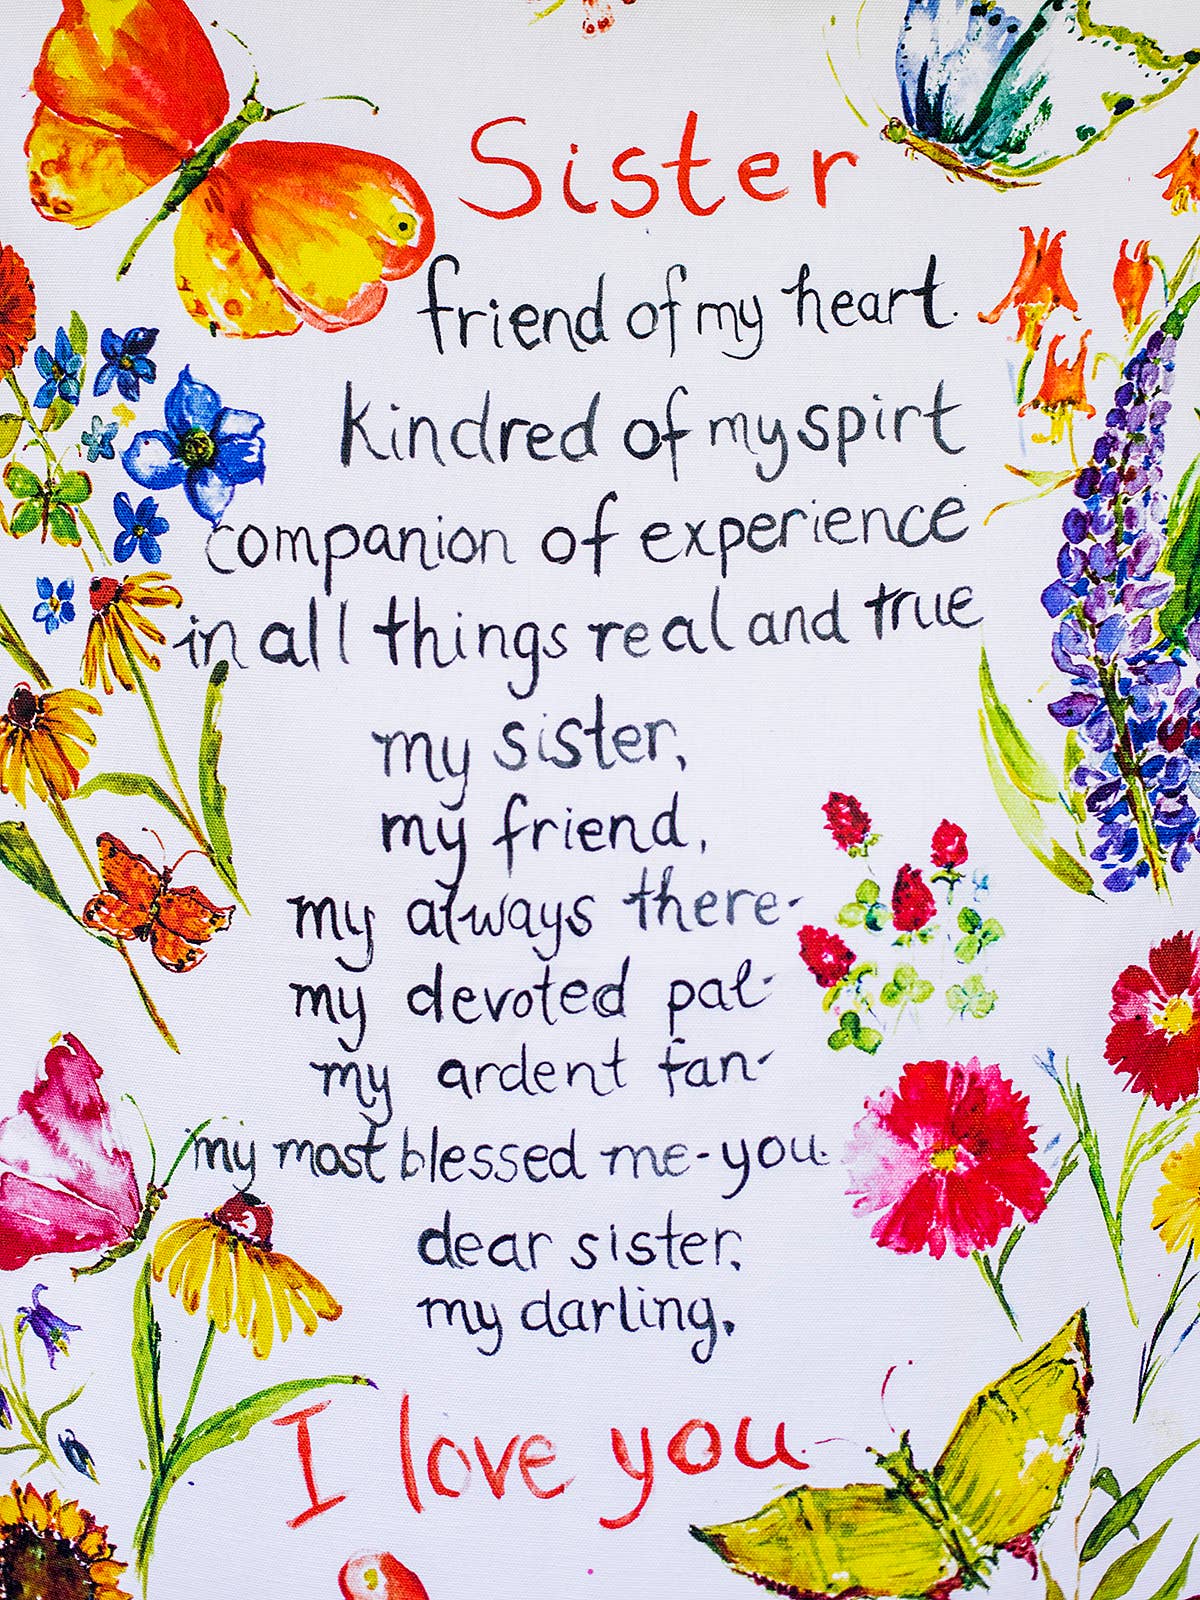 Sister
friend of my heart.
kindred of my spirt
companion of experience
in all things real and true
my sister,
my friend,
my always there-
my devoted pal-
my ardent fan-
my most blessed me-you.
dear sister,
my darling,
I love you.